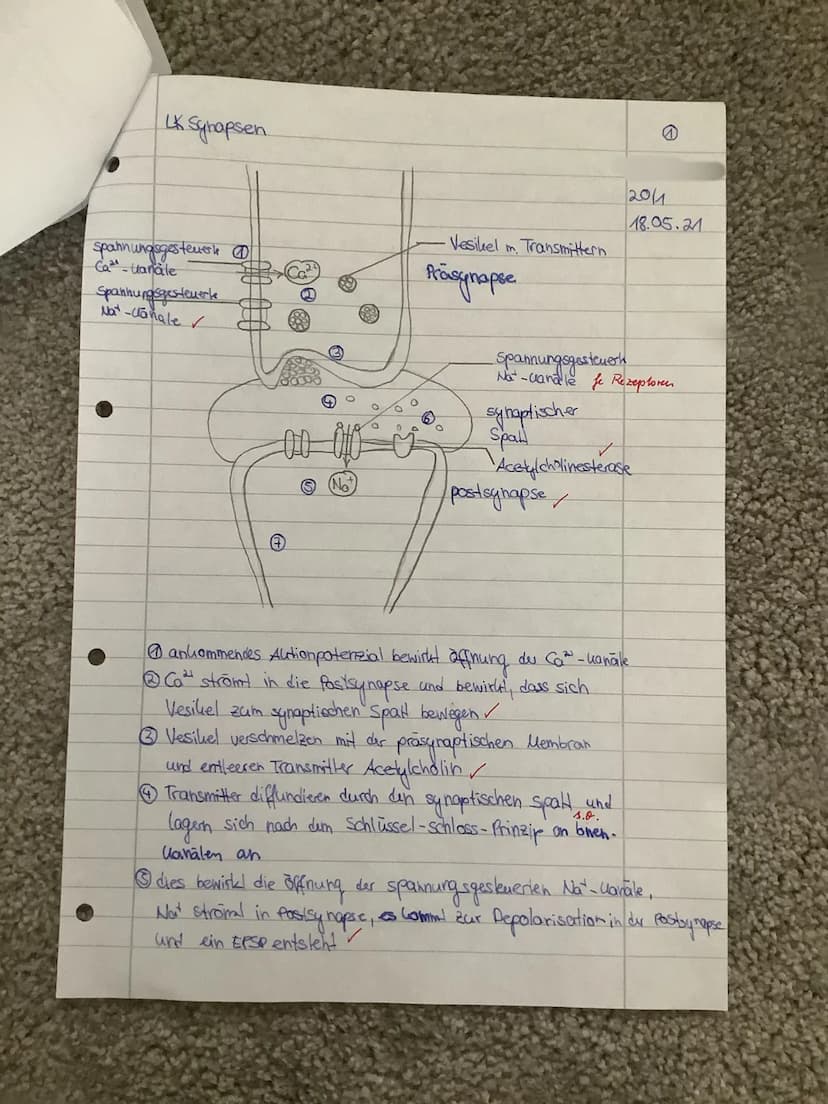 LK Synapsen
①
20/1
18.05.21
Spannungsgesteuerte ①
Ca²⁺-Kanäle
Spannungsgesteuerte
Na⁺-Kanäle ✓
Ca²⁺
②
③
④
⑤
⑥
⑦
Na⁺
Vesikel m. Transmittern
Präsynapse
Spannungsgesteuerte
Na⁺-Kanäle fe Rezeptoren
synaptischer
Spalt
Acetylcholinesterase ✓
postsynapse ✓
① ankommendes Aktionpotenzial bewirkt Öffnung der Ca²⁺-Kanäle
② Ca²⁺ strömt in die Postsynapse und bewirkt, dass sich
Vesikel zum synaptischen Spalt bewegen ✓
③ Vesikel verschmelzen mit der präsynaptischen Membran
und entleeren Transmitter Acetylcholin ✓
④ Transmitter diffundieren durch den synaptischen Spalt und
s.o.
lagern sich nach dem Schlüssel-Schloss-Prinzip an
Kanälen an
⑤ dies bewirkt die Öffnung der spannungsgesteuerten Na⁺-Kanäle,
Na⁺ strömt in Postsynapse, es kommt zur Depolarisation in der Postsynapse
und ein EPSP entsteht ✓